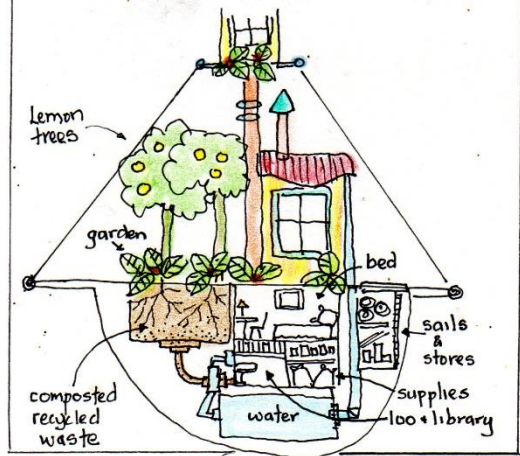 Lemon
trees
garden
bed
sails
&
stores
composted
recycled
waste
water
supplies
loo + library